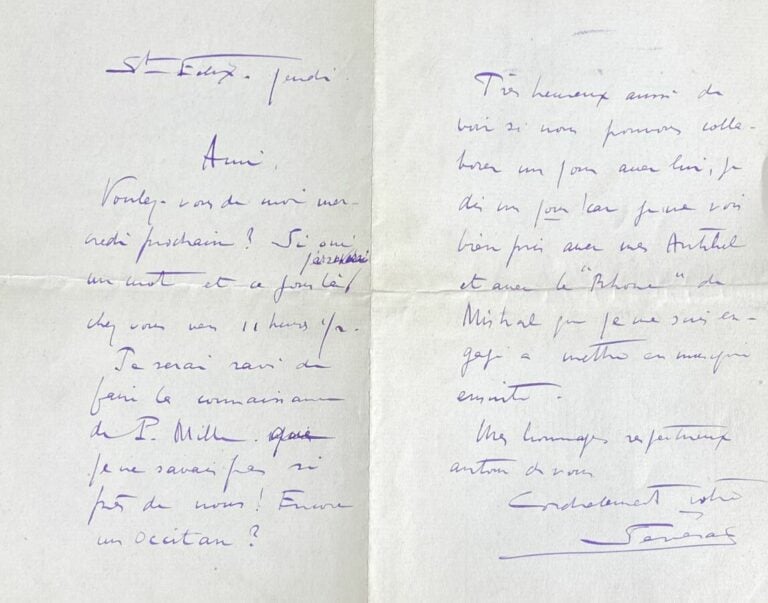 St-Félix. jeudi.
Ami,
Voulez-vous de moi mer-
credi prochain ? Si oui
j'arriverai
un mot et ce jour là
chez vous vers 11 heures 1/2.
Je serai ravi de
faire la connaissance
de P. Mille. que
je ne savais pas si
près de nous ! Encore
un occitan ?
Très heureux aussi de
voir si nous pouvons colla-
borer un jour avec lui, je
dis un jour ! car je me vois
bien pris avec mes Antibel
et avec le "Rhône" de
Mistral que je me suis en-
gagé a mettre en musique
ensuite.
Mes hommages respectueux
autour de vous
Cordialement votre
Séverac